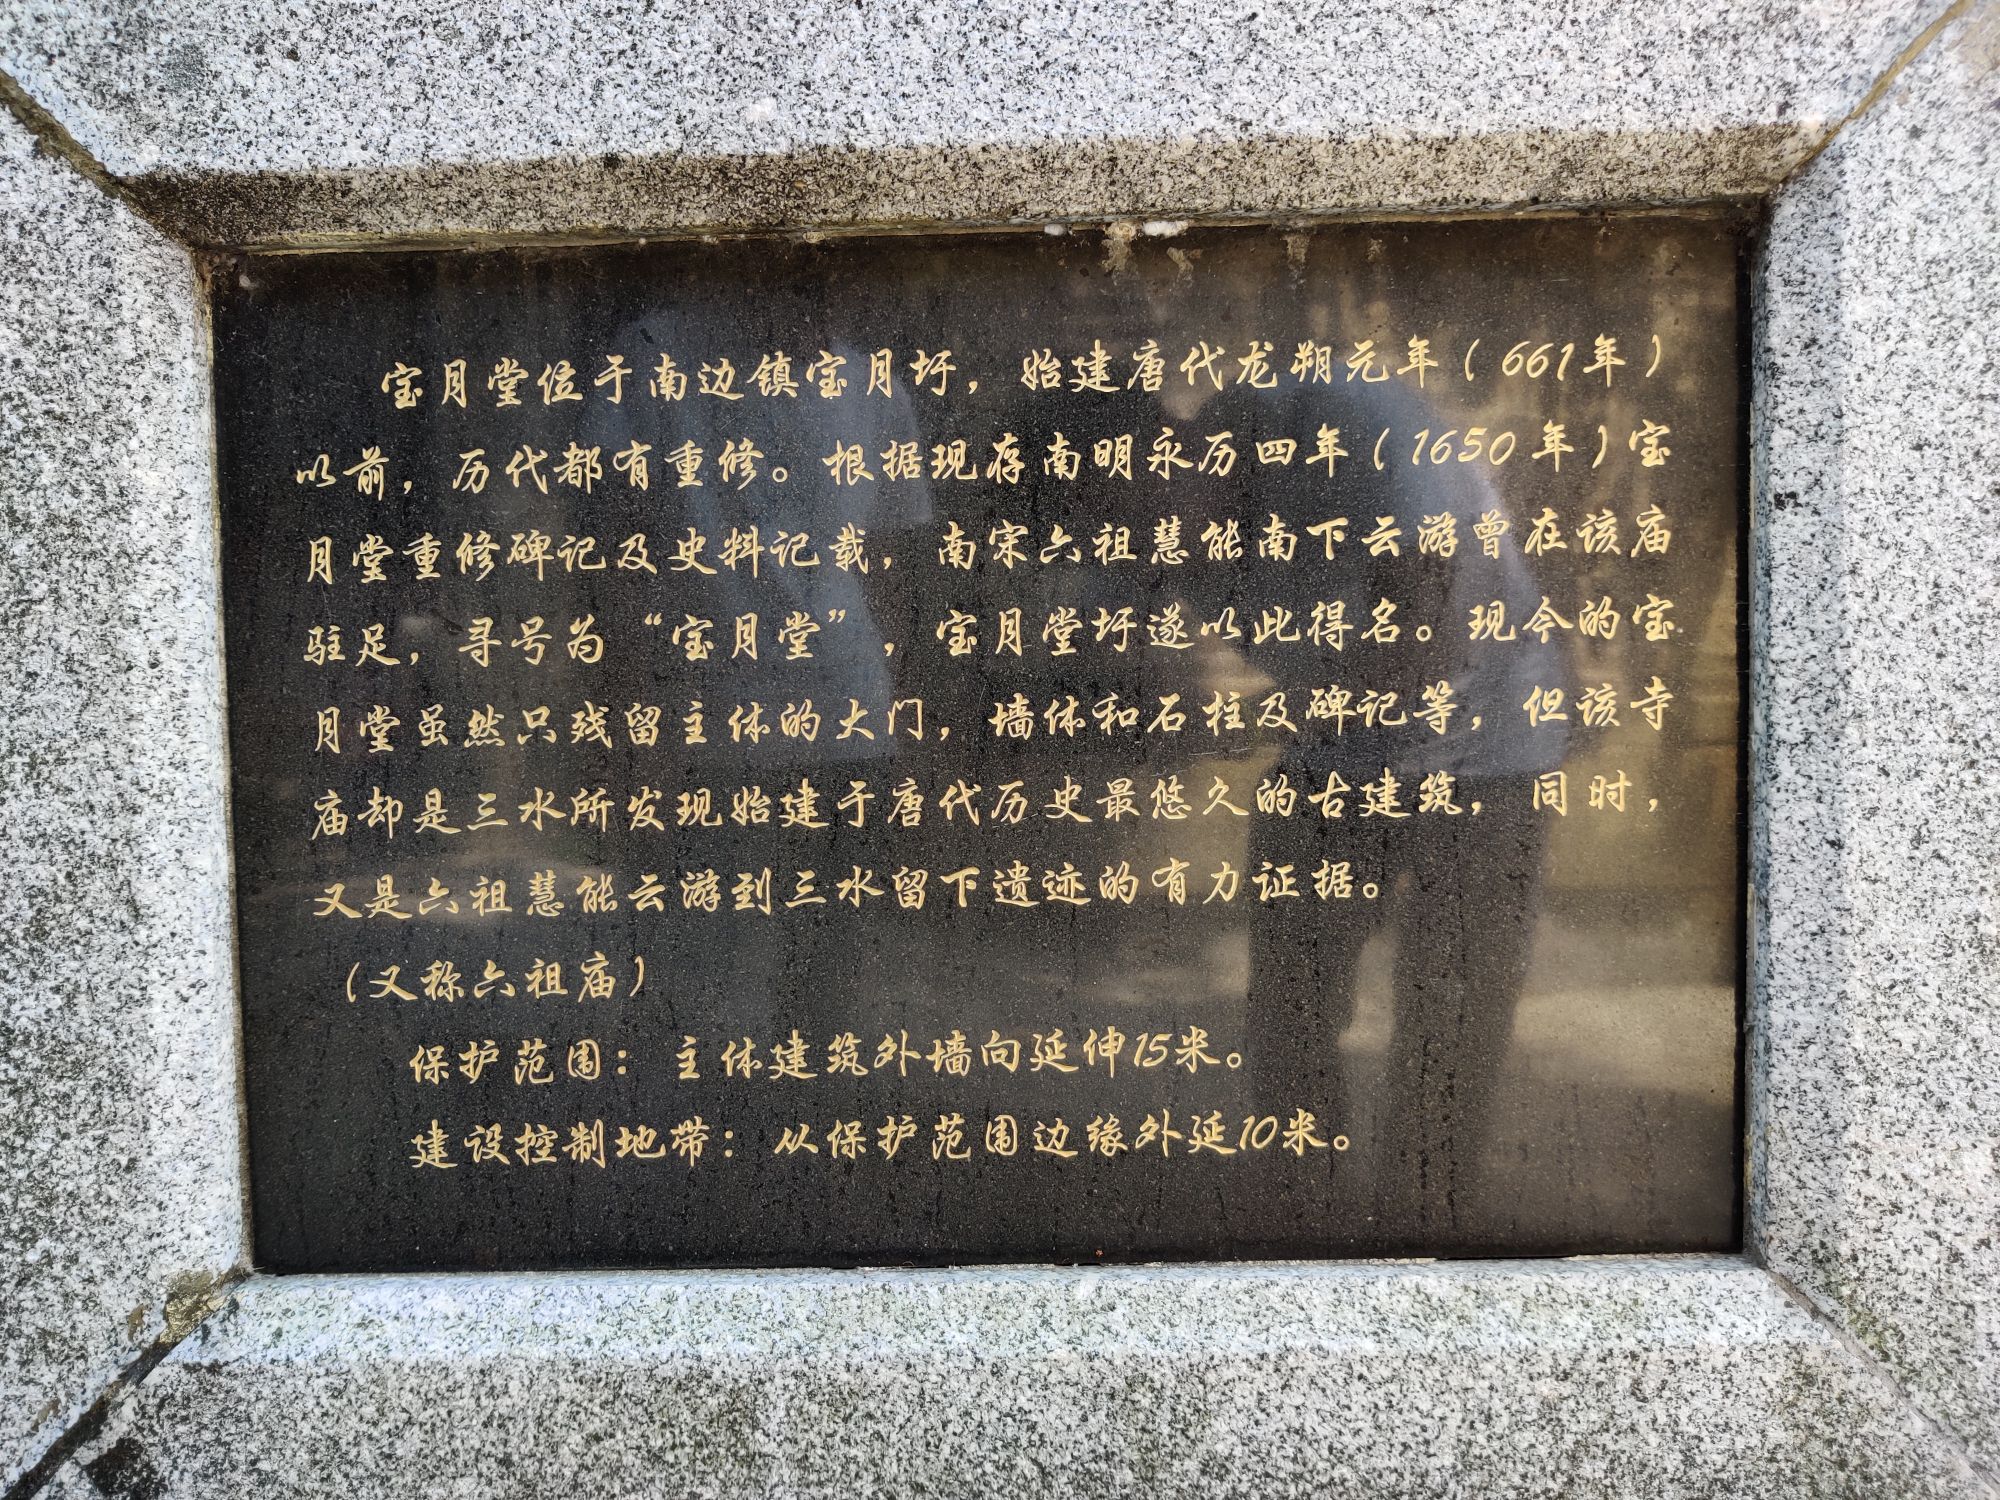 宝月堂位于南边镇宝月圩，始建唐代龙朔元年（661年）
以前，历代都有重修。根据现存南明永历四年（1650年）宝
月堂重修碑记及史料记载，南宋六祖慧能南下云游曾在该庙
驻足，寻号为“宝月堂”，宝月堂圩遂以此得名。现今的宝
月堂虽然只残留主体的大门，墙体和石柱及碑记等，但该寺
庙却是三水所发现始建于唐代历史最悠久的古建筑，同时，
又是六祖慧能云游到三水留下遗迹的有力证据。
（又称六祖庙）
保护范围：主体建筑外墙向延伸15米。
建设控制地带：从保护范围边缘外延10米。